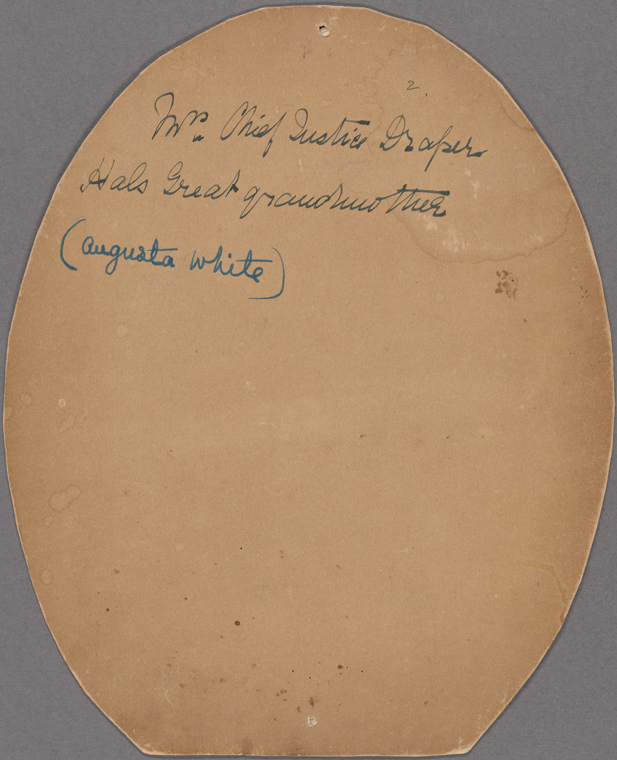 2.
Mrs. Chief Justice Draper
Hals Great grandmother
(Augusta White)